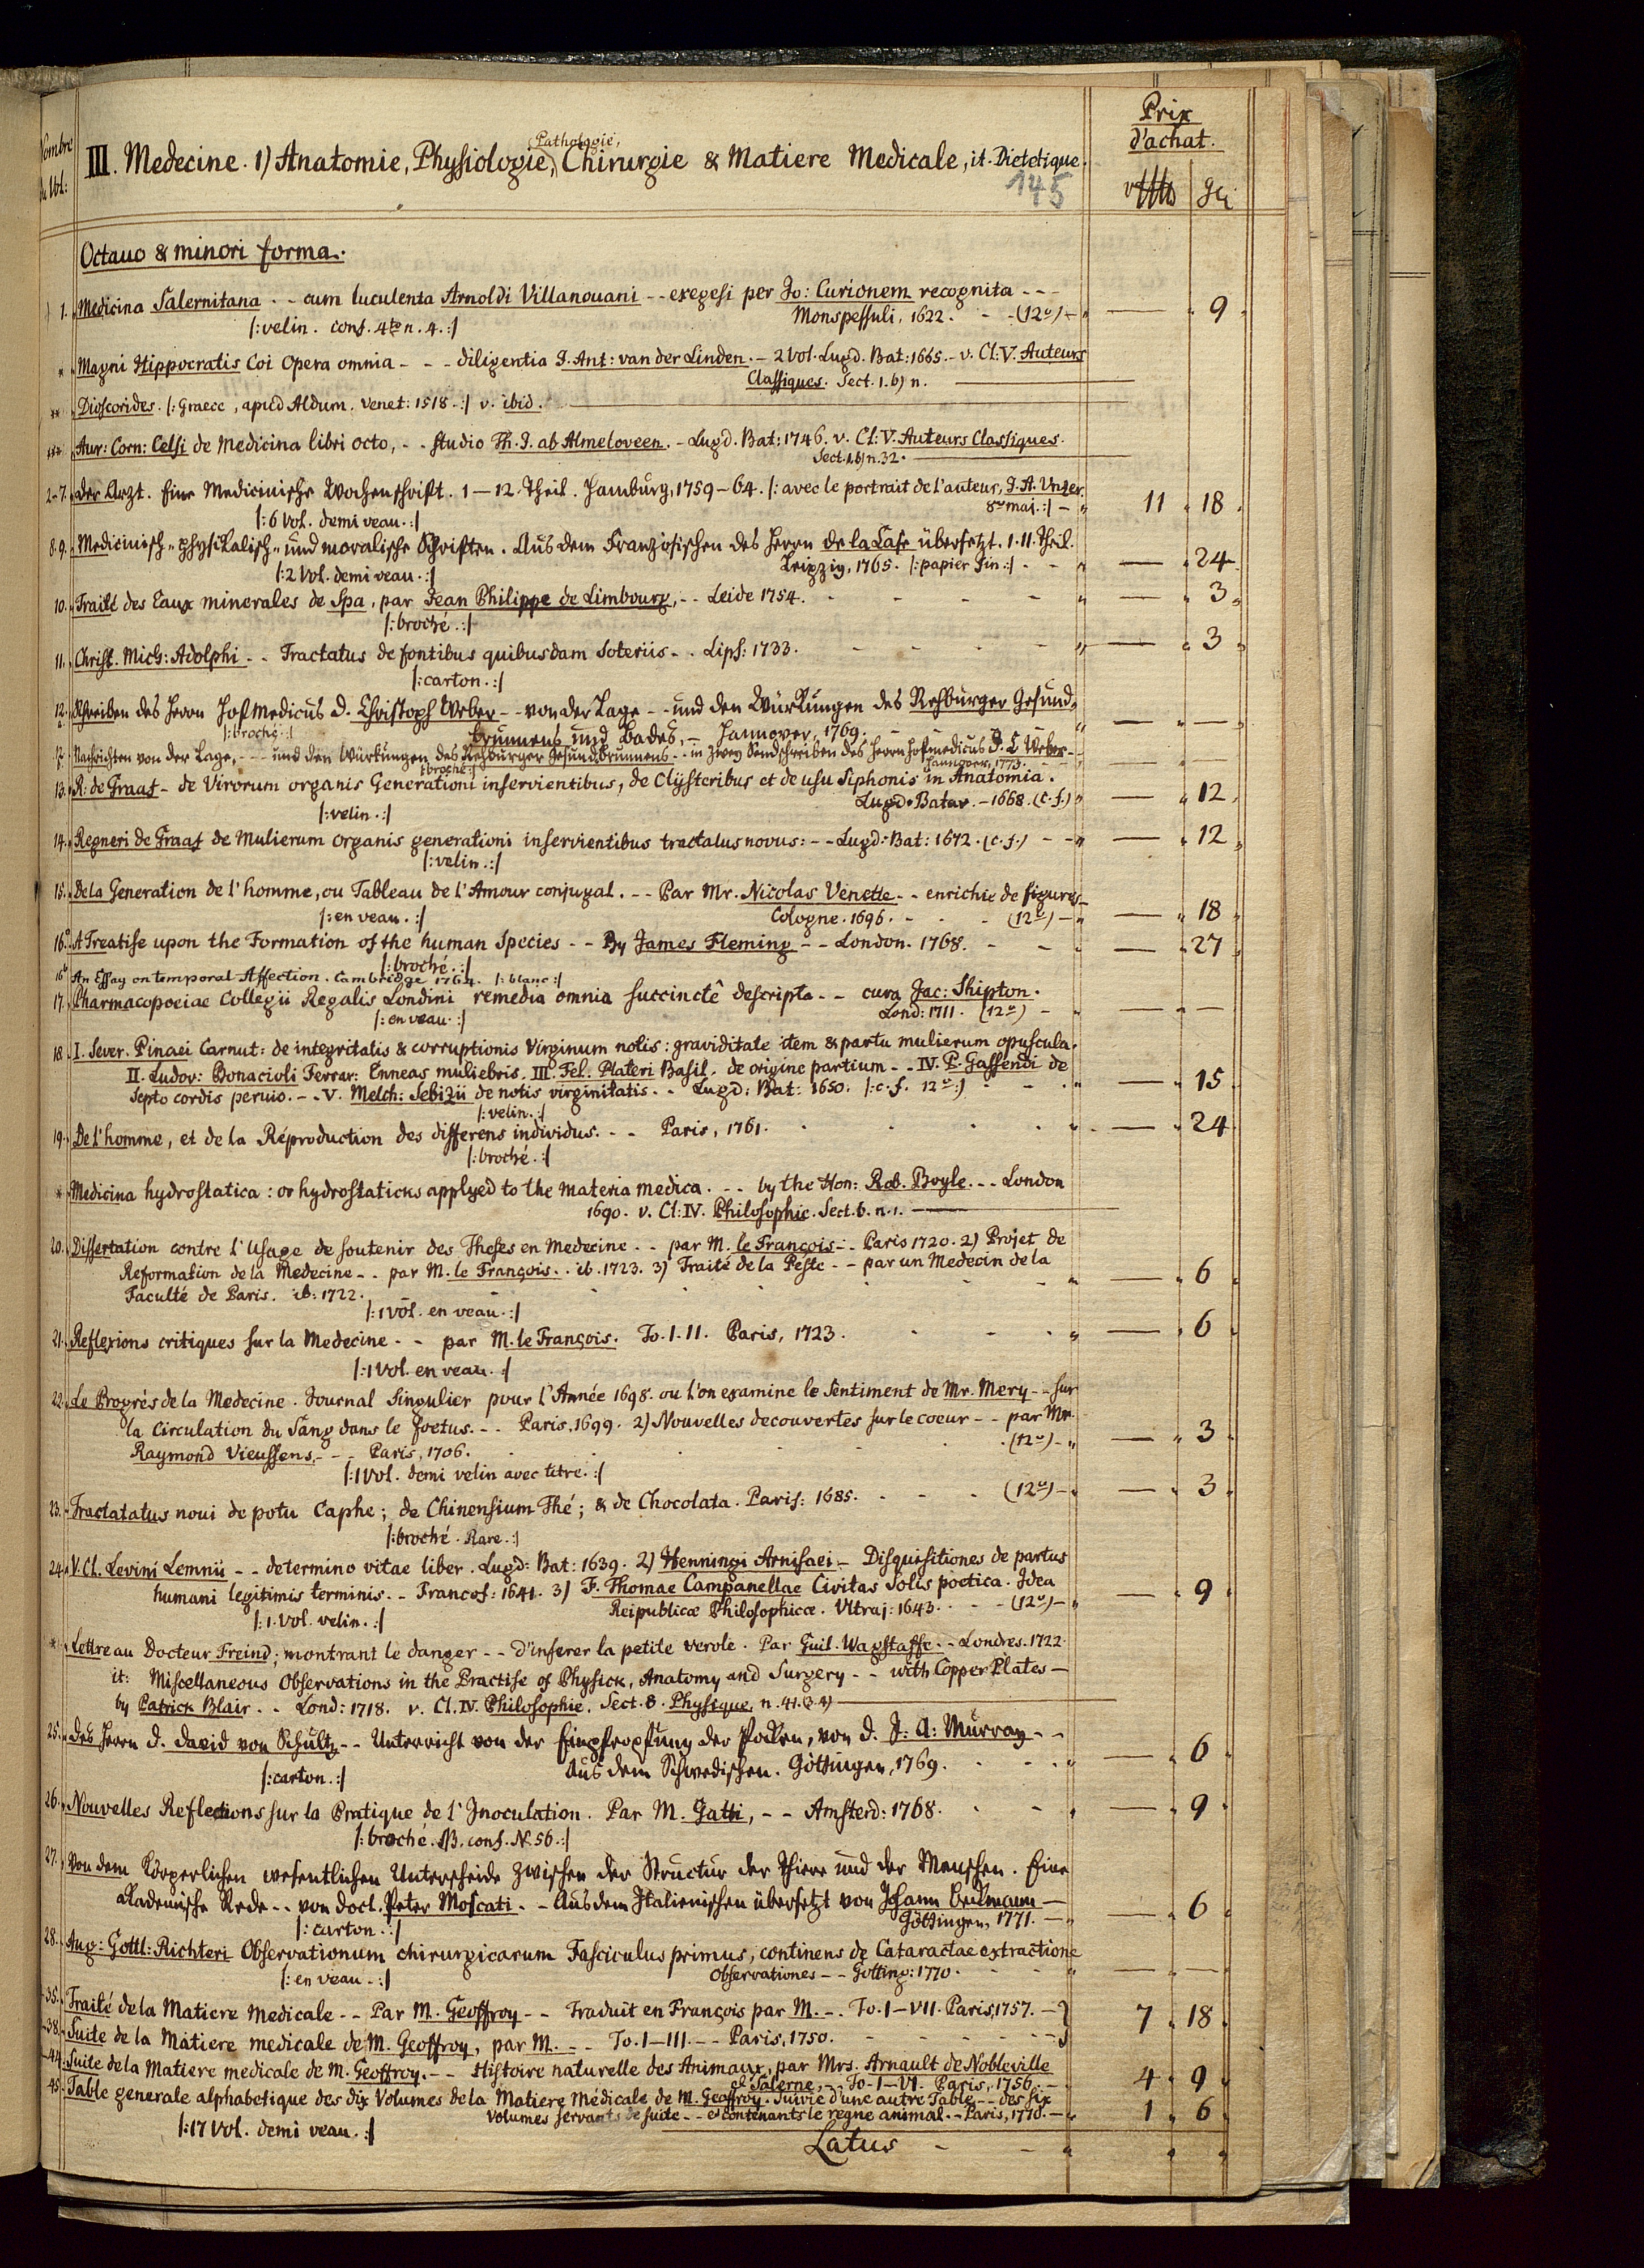 Nombre
du Vol:
III. Medecine. 1) Anatomie, Physiologie, Pathologie, Chirurgie & Matiere Medicale, it. Dietetique.
145
Prix
d'achat.
Octauo & minori forma.
1. Medicina Salernitana - - cum luculenta Arnoldi Villanouani - - exegesi per Jo: Curionem recognita - - -
|: velin. conf. 4to n. 4. :| Monspessuli, 1622. - - (12o) - 9
* Magni Hippocratis Coi Opera omnia - - - diligentia J. Ant: van der Linden. - 2 Vol. Lugd. Bat: 1665. - v. Cl: V. Auteurs
Classiques. Sect. 1. b) n.
** Dioscorides. |: Graece, apud Aldum. Venet: 1518. :| v. ibid.
*** Aur: Corn: Celsi de Medicina libri octo, - - studio Th. J. ab Almeloveen. - Lugd. Bat: 1746. v. Cl: V. Auteurs Classiques.
Sect. 1. b) n. 32.
2-7. der Arzt. Eine Medicinische Wochenschrift. 1-12. Theil. Hamburg, 1759-64. |: avec le portrait de l'auteur, J. A. Unzer.
|: 6 Vol. demi veau. :| 8vo maj. :| - 11 18
8. 9. Medicinisch- physikalisch- und moralische Schriften. Aus dem Französischen des Herrn de la Case übersetzt. I. II. Theil.
|: 2 Vol. demi veau. :| Leipzig, 1765. |: papier fin :| - - 24
10. Traité des Eaux minerales de Spa, par Jean Philippe de Limbourg, - - Leide 1754. - 3
|: broché. :|
11. Christ. Mich: Adolphi - - Tractatus de fontibus quibusdam soteriis - - Lips: 1733. - 3
|: carton. :|
12. Schreiben des Herrn Hofmedicus D. Christoph Weber - - von der Lage - - und den Würkungen des Rehburger Gesund-
|: broché. :| brunnens und Bades, - Hannover, 1769.
12. Nachrichten von der Lage, - - - und den Würkungen des Rehburger Gesundbrunnens - - in zwey Sendschreiben des Herrn Hofmedicus D. C. Weber - -
|: broché :| Hannover, 1773.
13. R: de Graaf - de Virorum organis Generationi inservientibus, de Clysteribus et de usu Siphonis in Anatomia.
|: velin. :| Lugd. Batav. - 1668. (c. f.) 12
14. Regneri de Graaf de Mulierum organis generationi inservientibus tractatus novus: - - Lugd: Bat: 1672. (c. f.) - - 12
|: velin. :|
15. De la Generation de l'homme, ou Tableau de l'Amour conjugal. - - Par Mr. Nicolas Venette - - enrichie de figures -
|: en veau. :| Cologne. 1696. - - (12o) - 18
16.a A Treatise upon the Formation of the human Species - - By James Fleming - - London. 1768. - - 27
|: broché. :|
16b An Essay on temporal Affection. Cambridge 1764. |: blanc :|
17. Pharmacopoeiae Collegii Regalis Londini remedia omnia succinctê descripta - - cura Jac: Shipton.
|: en veau. :| Lond: 1711. (12o) -
18. I. Sever. Pinaei Carnut: de integritatis & corruptionis Virginum notis: graviditate item & partu mulierum opuscula.
II. Ludov: Bonacioli Ferrar: Enneas muliebris. III. Fel. Plateri Basil. de origine partium - - IV. P. Gassendi de
septo cordis pervio. - - V. Melch: Sebizii de notis virginitatis - - Lugd: Bat: 1650. |: c. f. 12o :| 15
|: velin. :|
19. De l'homme, et de la Réproduction des differens individus. - - Paris, 1761. 24
|: broché. :|
* Medicina hydrostatica: or hydrostaticks applyed to the materia medica. - - by the Hon: Rob. Boyle. - - London
1690. v. Cl: IV. Philosophie. Sect. 6. n. 1.
20. Dissertation contre l'Usage de soutenir des Theses en Medecine - - par M. le François - - Paris 1720. 2) Projet de
Reformation de la Medecine - - par M. le François. - ib. 1723. 3) Traité de la Peste - - par un Medecin de la
Faculté de Paris. ib: 1722. 6
|: 1 Vol. en veau. :|
21. Reflexions critiques sur la Medecine - - par M. le François. To. I. II. Paris, 1723. 6
|: 1 Vol. en veau. :|
22. Le Progrés de la Medecine. Journal singulier pour l'Année 1698. ou l'on examine le sentiment de Mr. Mery - - sur
la Circulation du Sang dans le foetus. - - Paris, 1699. 2) Nouvelles decouvertes sur le coeur - - par Mr.
Raymond Vieussens. - - - Paris, 1706. (12o) - 3
|: 1 Vol. demi velin avec titre. :|
23. Tractatatus noui de potu Caphe; de Chinensium Thé; & de Chocolata. Paris: 1685. - (12o) - 3
|: broché. Rare. :|
24. V. Cl. Levini Lemnii - - de termino vitae liber. Lugd: Bat: 1639. 2) Henningi Arnisaei - Disquisitiones de partus
humani legitimis terminis. - Francof: 1641. 3) F. Thomae Campanellae Civitas Solis poetica. Idea
|: 1. Vol. velin. :| Reipublicæ Philosophicæ. Ultraj: 1643. - - (12o) - 9
* Lettre au Docteur Freind; montrant le danger - - d'inferer la petite verole. Par Guil. Wagstaffe. - Londres. 1722.
it: Miscellaneous Observations in the Practise of Physick, Anatomy and Surgery - - with Copper Plates -
by Patrick Blair - - Lond: 1718. v. Cl. IV. Philosophie. Sect. 8. Physique, n. 41. (3. 4)
25. des Herrn D. David von Schultz - - Unterricht von der Einpfropfung der Pocken, von D. J: A: Murray - -
|: carton. :| Aus dem Schwedischen. Göttingen, 1769. 6
26. Nouvelles Reflections sur la Pratique de l'Inoculation. Par M. Gatti, - - Amsterd: 1768. 9
|: broché. NB. conf. N. 56. :|
27. Von dem körperlichen wesentlichen Unterscheide zwischen der Structur der Thiere und der Menschen. Eine
akademische Rede - - von Doct. Peter Moscati - - Aus dem Italienischen übersetzt von Johann Beckmann -
|: carton. :| Göttingen, 1771. - 6
28. Aug: Gottl: Richteri Observationum chirurgicarum Fasciculus primus, continens de Cataractae extractione
|: en veau - :| Observationes - - Gotting: 1770.
-35. Traité de la Matiere Medicale - - Par M. Geoffroy - - Traduit en François par M. - - To. I-VII. Paris, 1757. - 7 18
-38. Suite de la Matiere medicale de M. Geoffroy, par M. - - To. I-III. - - Paris, 1750.
-44. Suite de la Matiere medicale de M. Geoffroy. - - Histoire naturelle des Animaux, par Mrs. Arnault de Nobleville
et Salerne, - - To. I-VI. Paris, 1756. - 4 9
45. Table generale alphabetique des dix Volumes de la Matiere Médicale de M. Geoffroy. Suivie d'une autre Table - - des six
Volumes servants de suite - - et contenants le regne animal. - Paris, 1770. - 1 6
|: 17 Vol. demi veau. :|
Latus - -